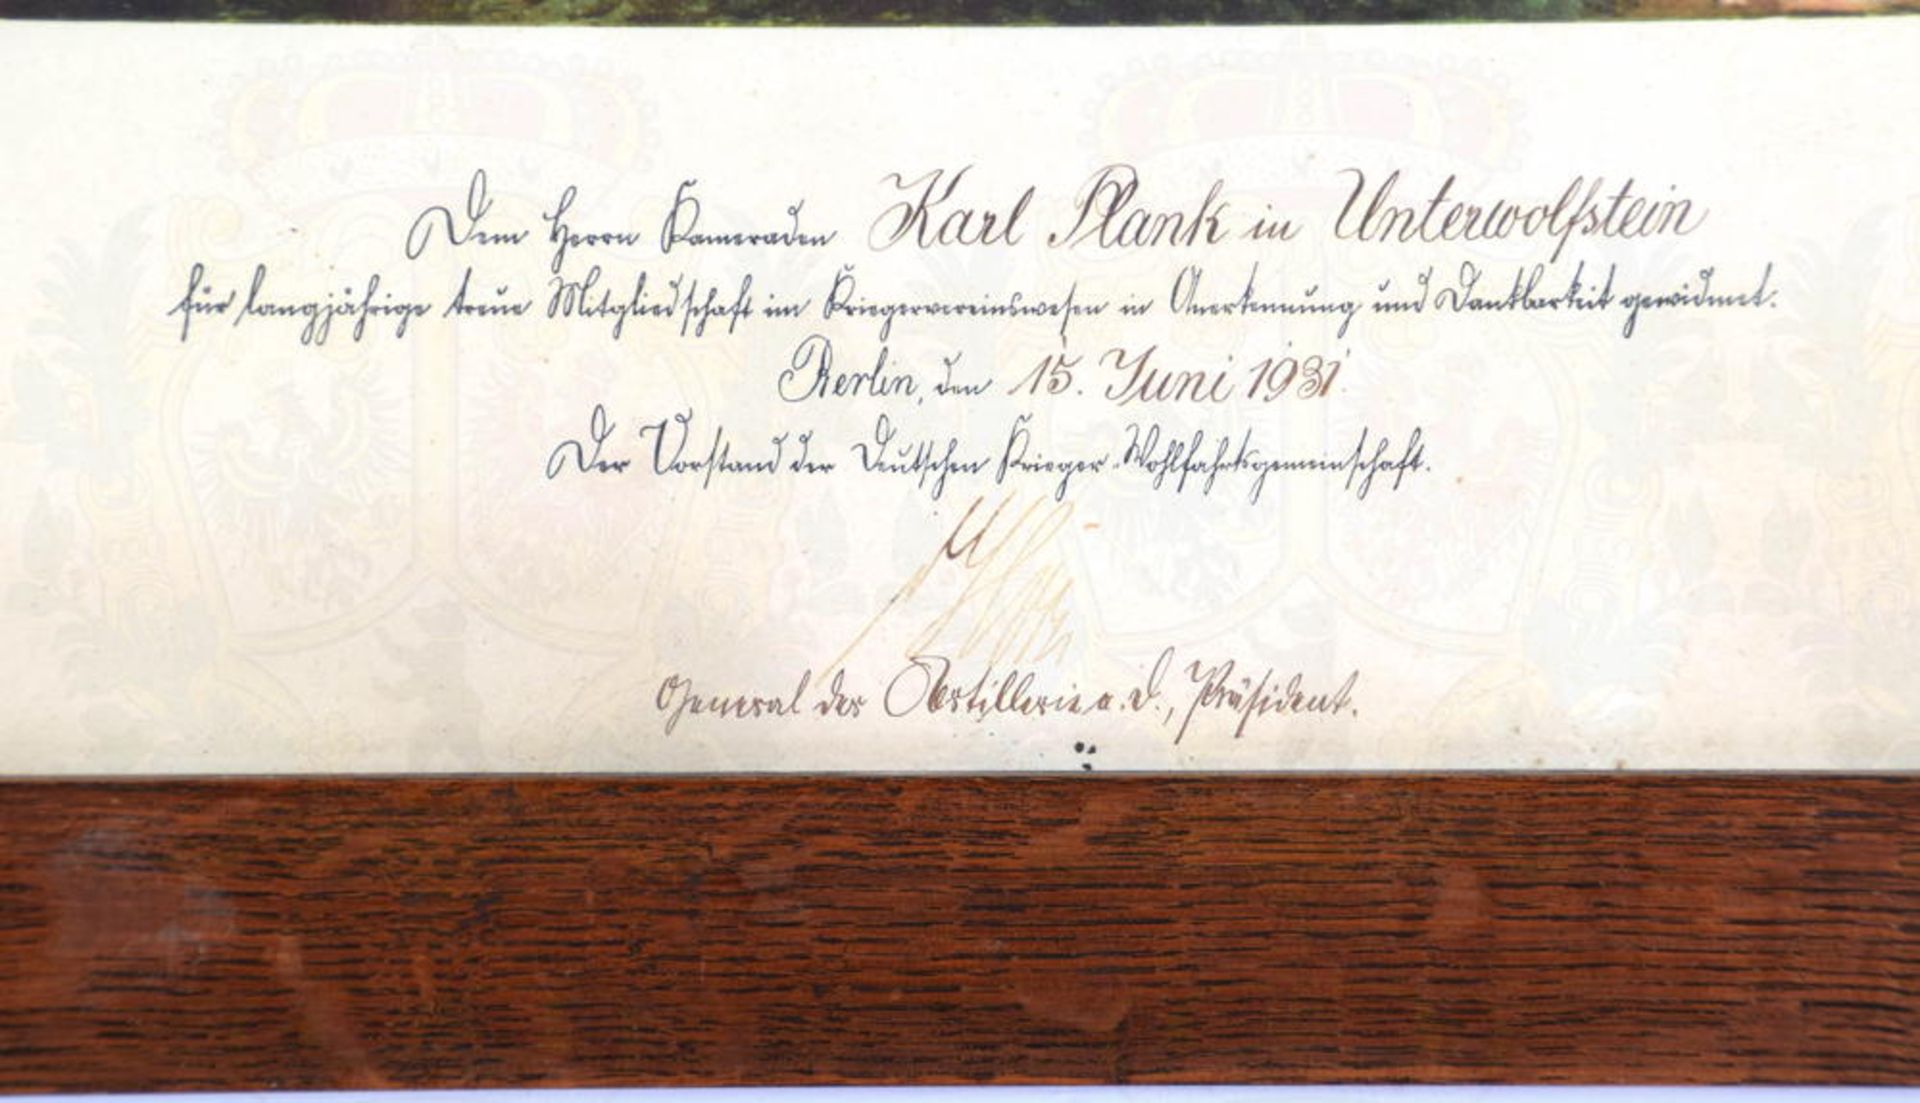 Dem Herrn Kameraden Karl Plank in Unterwolfstein
für langjährige treue Mitgliedschaft im Kriegervereinswesen in Anerkennung und Dankbarkeit gewidmet.
Berlin, den 15. Juni 1931.
Der Vorstand der Deutschen Krieger-Wohlfahrtsgemeinschaft.
General der Artillerie a. D., Präsident.